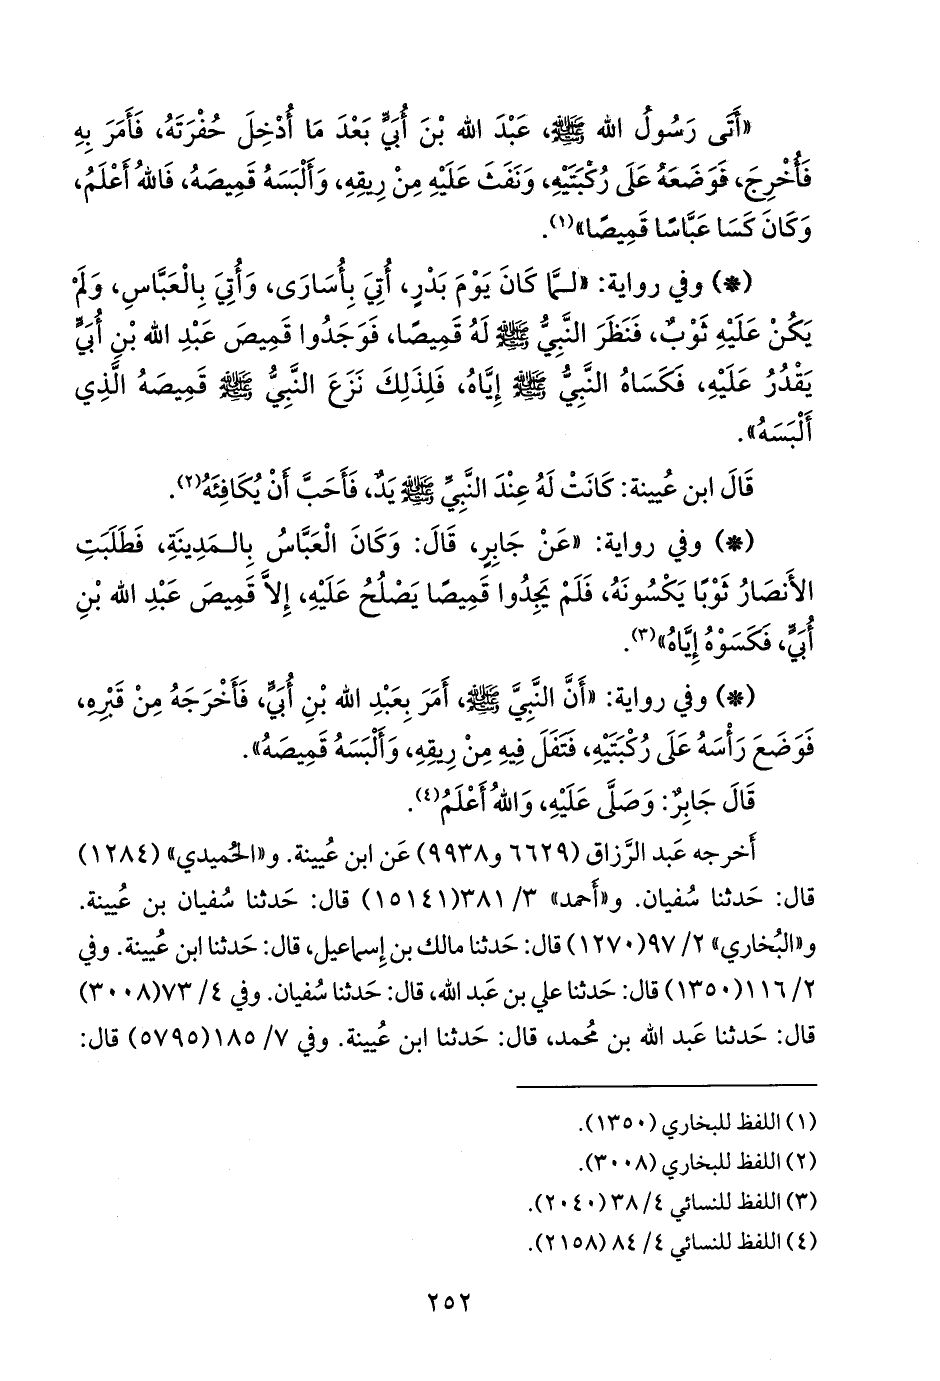 «أَتَى رَسُولُ الله ﷺ، عَبْدَ الله بْنَ أُبَيٍّ بَعْدَ مَا أُدْخِلَ حُفْرَتَهُ، فَأَمَرَ بِهِ
فَأُخْرِجَ، فَوَضَعَهُ عَلَى رُكْبَتَيْهِ، وَنَفَثَ عَلَيْهِ مِنْ رِيقِهِ، وَأَلْبَسَهُ قَمِيصَهُ، فَاللهُ أَعْلَمُ،
وَكَانَ كَسَا عَبَّاسًا قَمِيصًا»(١).
(*) وفي رواية: «لـمَّا كَانَ يَوْمَ بَدْرٍ، أُتِيَ بِأُسَارَى، وَأُتِيَ بِالْعَبَّاسِ، وَلَمْ
يَكُنْ عَلَيْهِ ثَوْبٌ، فَنَظَرَ النَّبِيُّ ﷺ لَهُ قَمِيصًا، فَوَجَدُوا قَمِيصَ عَبْدِ الله بْنِ أُبَيٍّ
يَقْدُرُ عَلَيْهِ، فَكَسَاهُ النَّبِيُّ ﷺ إِيَّاهُ، فَلِذَلِكَ نَزَعَ النَّبِيُّ ﷺ قَمِيصَهُ الَّذِي
أَلْبَسَهُ».
قَالَ ابن عُيينة: كَانَتْ لَهُ عِنْدَ النَّبِيِّ ﷺ يَدٌ، فَأَحَبَّ أَنْ يُكَافِئَهُ(٢).
(*) وفي رواية: «عَنْ جَابِرٍ، قَالَ: وَكَانَ الْعَبَّاسُ بِالـمَدِينَةِ، فَطَلَبَتِ
الأَنْصَارُ ثَوْبًا يَكْسُونَهُ، فَلَمْ يَجِدُوا قَمِيصًا يَصْلُحُ عَلَيْهِ، إِلاَّ قَمِيصَ عَبْدِ الله بْنِ
أُبَيٍّ، فَكَسَوْهُ إِيَّاهُ»(٣).
(*) وفي رواية: «أَنَّ النَّبِيَّ ﷺ، أَمَرَ بِعَبْدِ الله بْنِ أُبَيٍّ، فَأَخْرَجَهُ مِنْ قَبْرِهِ،
فَوَضَعَ رَأْسَهُ عَلَى رُكْبَتَيْهِ، فَتَفَلَ فِيهِ مِنْ رِيقِهِ، وَأَلْبَسَهُ قَمِيصَهُ».
قَالَ جَابِرٌ: وَصَلَّى عَلَيْهِ، وَاللهُ أَعْلَمُ(٤).
أَخرجه عَبد الرَّزاق (٦٦٢٩ و٩٩٣٨) عَن ابن عُيينة. و«الحُميدي» (١٢٨٤)
قال: حَدثنا سُفيان. و«أَحمد» ٣/ ٣٨١(١٥١٤١) قال: حَدثنا سُفيان بن عُيينة.
و«البُخاري» ٢/ ٩٧(١٢٧٠) قال: حَدثنا مالك بن إِسماعيل، قال: حَدثنا ابن عُيينة. وفي
٢/ ١١٦(١٣٥٠) قال: حَدثنا علي بن عَبد الله، قال: حَدثنا سُفيان. وفي ٤/ ٧٣(٣٠٠٨)
قال: حَدثنا عَبد الله بن مُحمد، قال: حَدثنا ابن عُيينة. وفي ٧/ ١٨٥(٥٧٩٥) قال:
(١) اللفظ للبخاري (١٣٥٠).
(٢) اللفظ للبخاري (٣٠٠٨).
(٣) اللفظ للنسائي ٤/ ٣٨(٢٠٤٠).
(٤) اللفظ للنسائي ٤/ ٨٤ (٢١٥٨).
٢٥٢